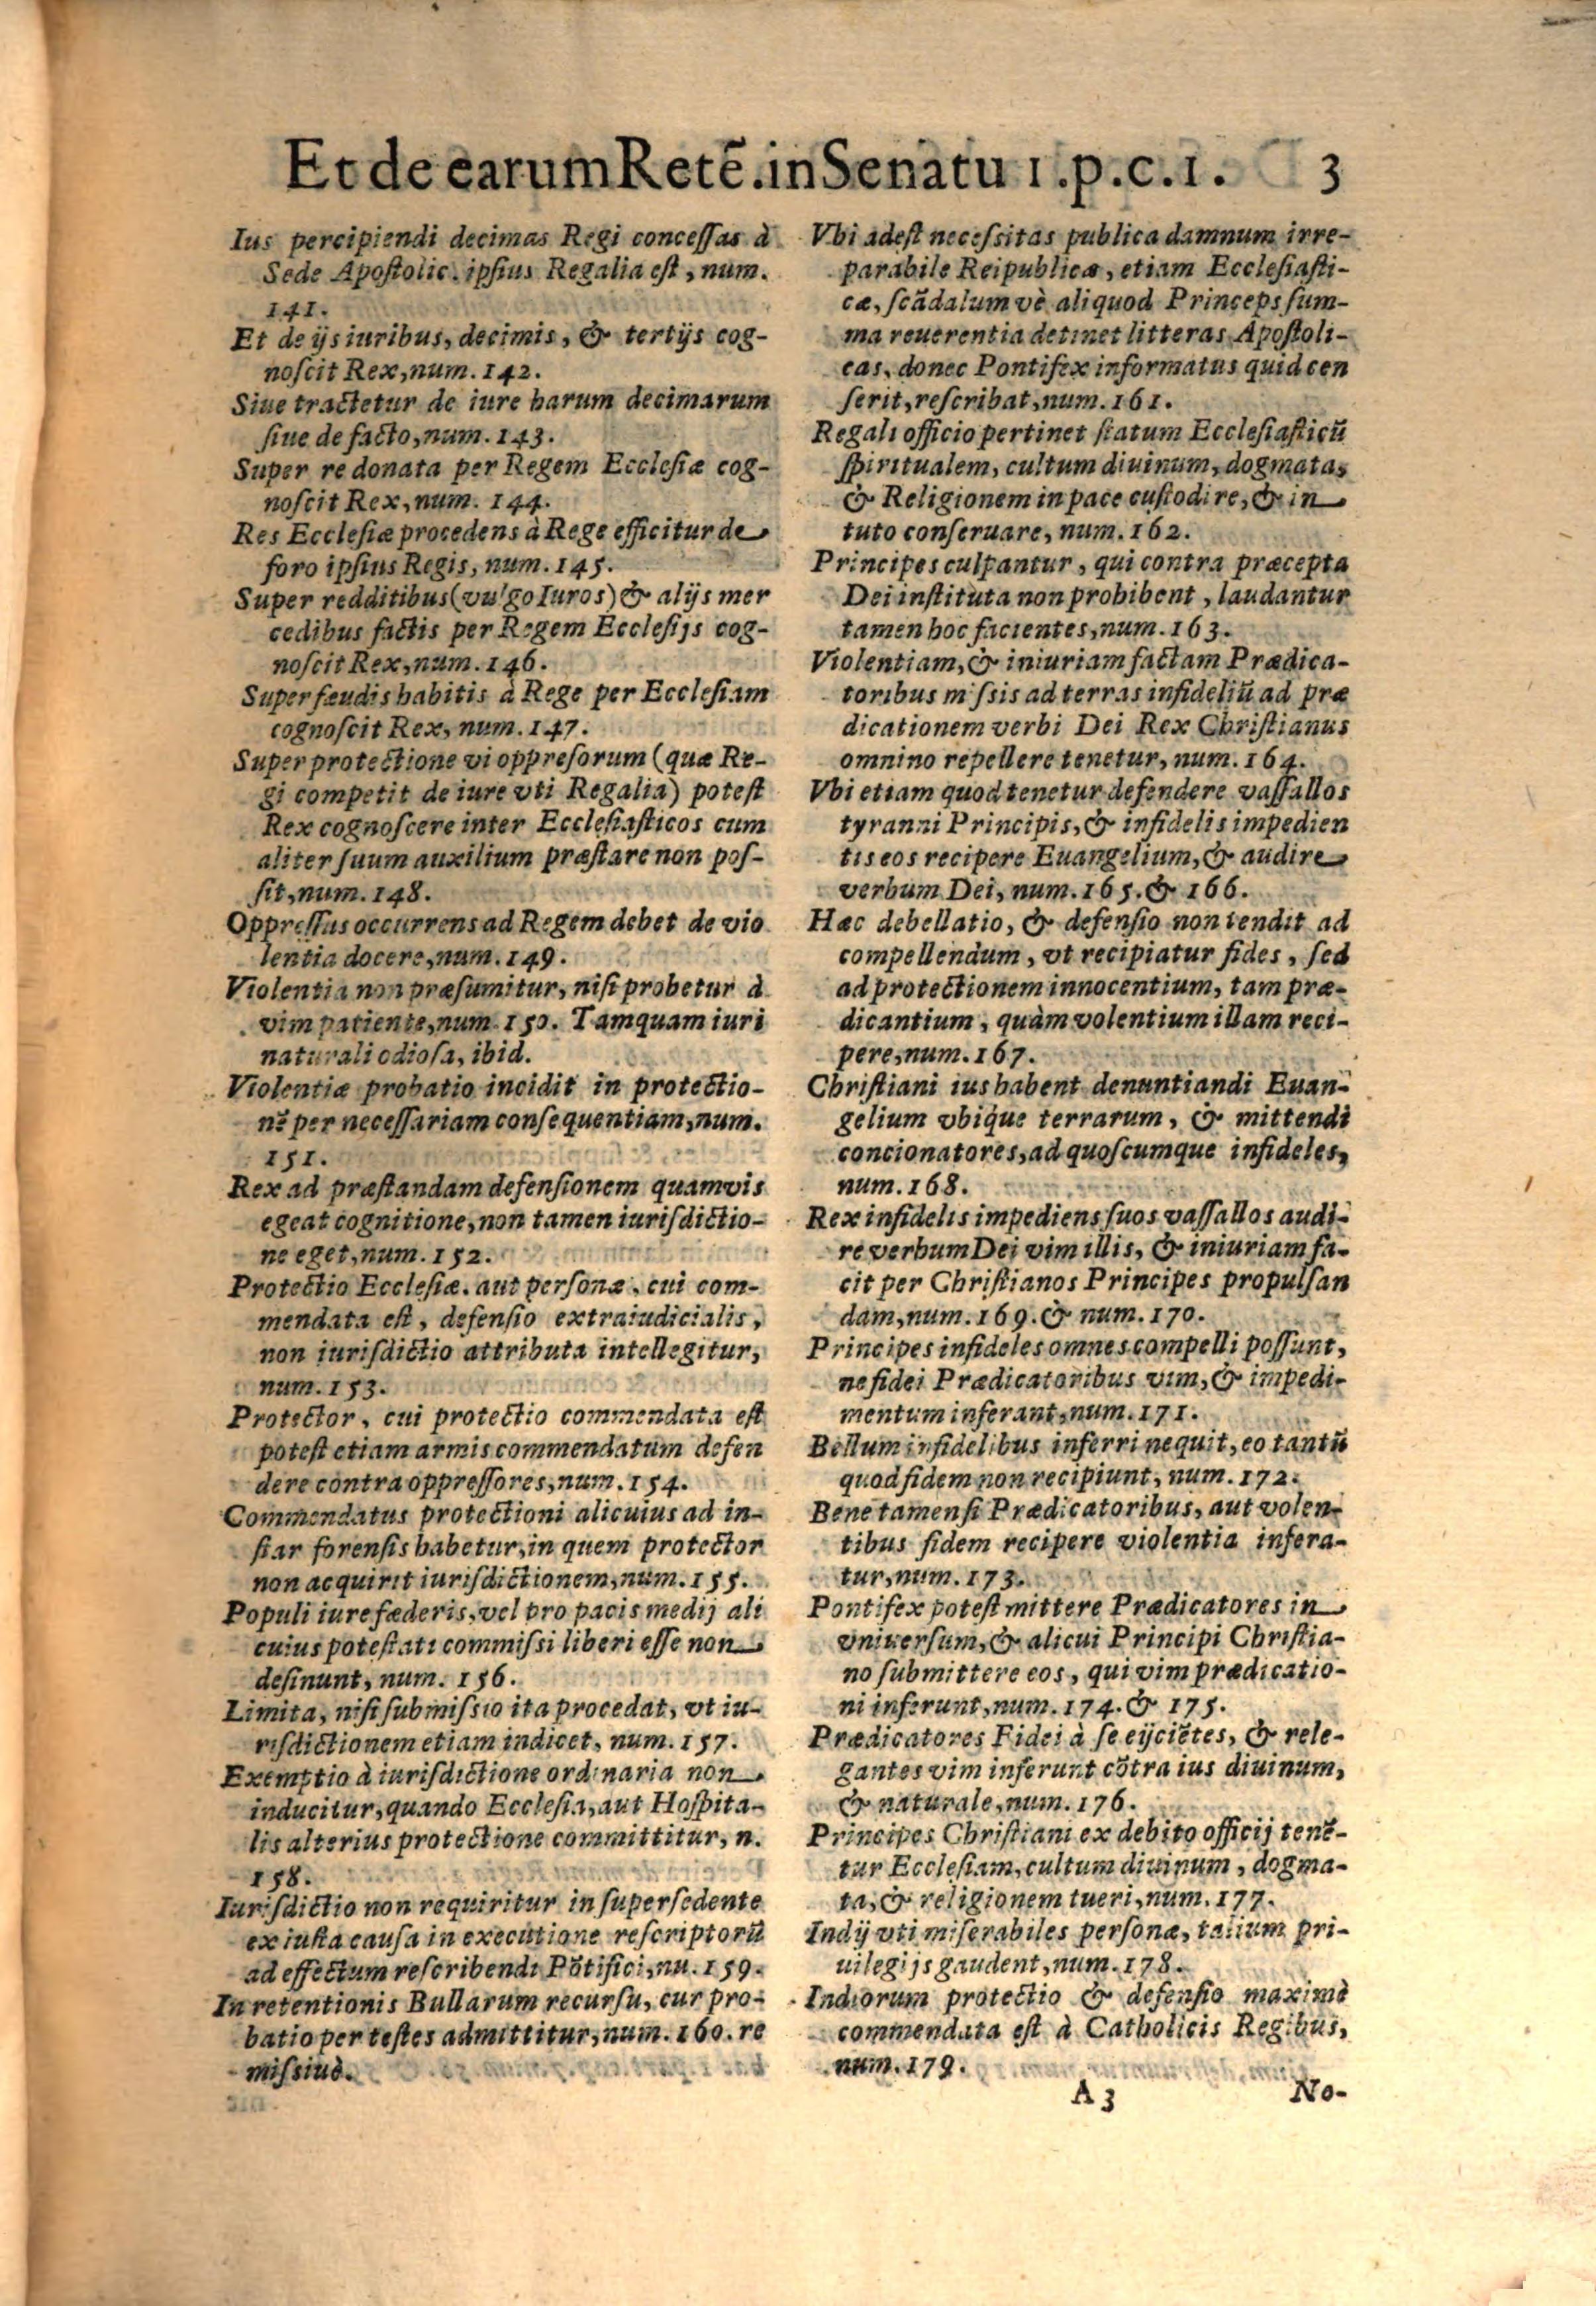 Et de earum Retē. in Senatu 1. p. c. 1. 3
Ius percipiendi decimas Regi concessas à
Sede Apostolic. ipsius Regalia est, num.
141.
Et de ijs iuribus, decimis, & tertijs cog-
noscit Rex, num. 142.
Siue tractetur de iure harum decimarum
siue de facto, num. 143.
Super re donata per Regem Ecclesiæ cog-
noscit Rex, num. 144.
Res Ecclesiæ procedens à Rege efficitur de
foro ipsius Regis, num. 145.
Super redditibus (vulgo Iuros) & alijs mer
cedibus factis per Regem Ecclesijs cog-
noscit Rex, num. 146.
Super fœudis habitis à Rege per Ecclesiam
cognoscit Rex, num. 147.
Super protectione vi oppresorum (quæ Re-
gi competit de iure vti Regalia) potest
Rex cognoscere inter Ecclesiasticos cum
aliter suum auxilium præstare non pos-
sit, num. 148.
Oppressus occurrens ad Regem debet de vio
lentia docere, num. 149.
Violentia non præsumitur, nisi probetur à
vim patiente, num. 150. Tamquam iuri
naturali odiosa, ibid.
Violentiæ probatio incidit in protectio-
nē per necessariam consequentiam, num.
151.
Rex ad præstandam defensionem quamvis
egeat cognitione, non tamen iurisdictio-
ne eget, num. 152.
Protectio Ecclesiæ. aut personæ, cui com-
mendata est, defensio extraiudicialis,
non iurisdictio attributa intellegitur,
num. 153.
Protector, cui protectio commendata est
potest etiam armis commendatum defen
dere contra oppressores, num. 154.
Commendatus protectioni alicuius ad in-
star forensis habetur, in quem protector
non acquirit iurisdictionem, num. 155.
Populi iure fæderis, vel pro pacis medij ali
cuius potestati commissi liberi esse non
desinunt, num. 156.
Limita, nisi submissio ita procedat, vt iu-
risdictionem etiam indicet, num. 157.
Exemptio à iurisdictione ordinaria non
inducitur, quando Ecclesia, aut Hospita-
lis alterius protectione committitur, n.
158.
Iurisdictio non requiritur in supersedente
ex iusta causa in executione rescriptorū
ad effectum rescribendi Pōtifici, nu. 159.
In retentionis Bullarum recursu, cur pro-
batio per testes admittitur, num. 160. re
missiuè.
Vbi adest necessitas publica damnum irre-
parabile Reipublicæ, etiam Ecclesiasti-
cæ, scādalum vè aliquod Princeps sum-
ma reuerentia detinet litteras Apostoli-
cas, donec Pontifex informatus quid cen
serit, rescribat, num. 161.
Regali officio pertinet statum Ecclesiasticū
spiritualem, cultum diuinum, dogmata,
& Religionem in pace custodire, & in
tuto conseruare, num. 162.
Principes culpantur, qui contra præcepta
Dei instituta non prohibent, laudantur
tamen hoc facientes, num. 163.
Violentiam, & iniuriam factam Prædica-
toribus missis ad terras infideliū ad præ
dicationem verbi Dei Rex Christianus
omnino repellere tenetur, num. 164.
Vbi etiam quod tenetur defendere vassallos
tyranni Principis, & infidelis impedien
tis eos recipere Euangelium, & audire
verbum Dei, num. 165. & 166.
Hæc debellatio, & defensio non tendit ad
compellendum, vt recipiatur fides, sed
ad protectionem innocentium, tam præ-
dicantium, quàm volentium illam reci-
pere, num. 167.
Christiani ius habent denuntiandi Euan-
gelium vbique terrarum, & mittendi
concionatores, ad quoscumque infideles,
num. 168.
Rex infidelis impediens suos vassallos audi-
re verbum Dei vim illis, & iniuriam fa-
cit per Christianos Principes propulsan
dam, num. 169. & num. 170.
Principes infideles omnes compelli possunt,
ne fidei Prædicatoribus vim, & impedi-
mentum inferant, num. 171.
Bellum infidelibus inferri nequit, eo tantū
quod fidem non recipiunt, num. 172.
Bene tamen si Prædicatoribus, aut volen-
tibus fidem recipere violentia infera-
tur, num. 173.
Pontifex potest mittere Prædicatores in
vniuersum, & alicui Principi Christia-
no submittere eos, qui vim prædicatio-
ni inferunt, num. 174. & 175.
Prædicatores Fidei à se eijciētes, & rele-
gantes vim inferunt cōtra ius diuinum,
& naturale, num. 176.
Principes Christiani ex debito officij tenē-
tur Ecclesiam, cultum diuinum, dogma-
ta, & religionem tueri, num. 177.
Indij vti miserabiles personæ, talium pri-
uilegijs gaudent, num. 178.
Indiorum protectio & defensio maximè
commendata est à Catholicis Regibus,
num. 179.
A 3 No-